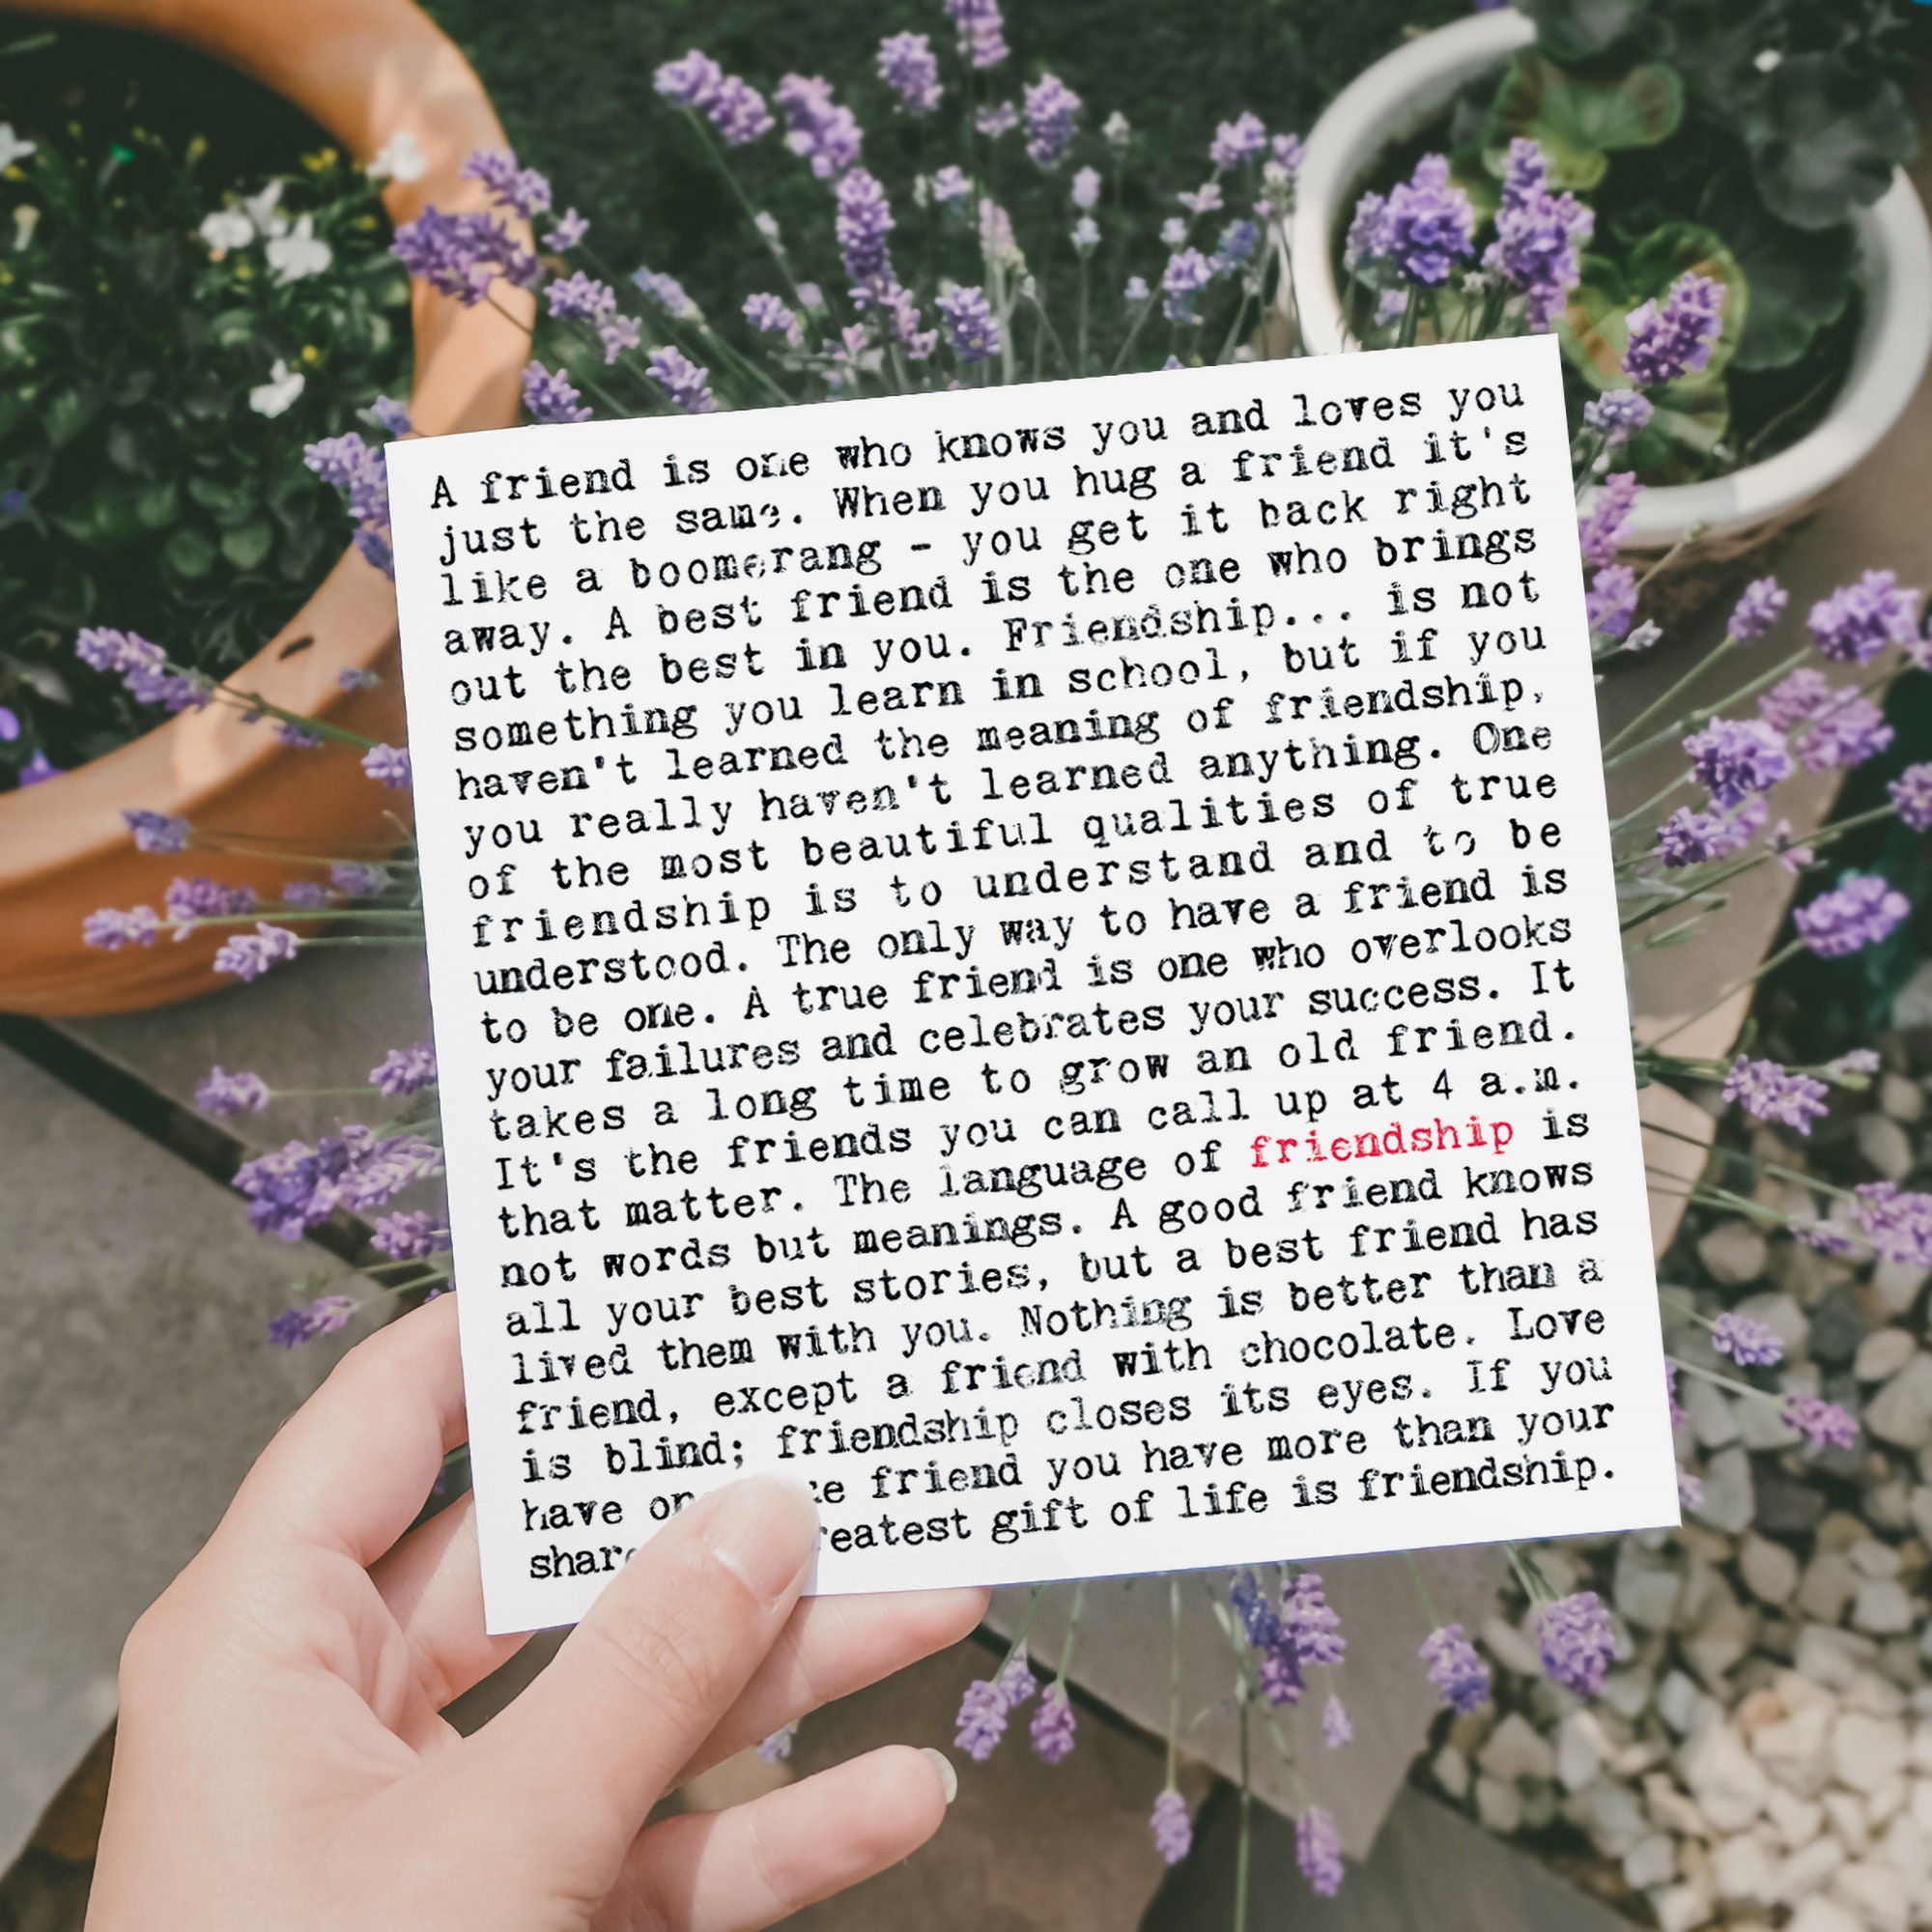 A friend is one who knows you and loves you
just the same. When you hug a friend it's
like a boomerang - you get it back right
away. A best friend is the one who brings
out the best in you. Friendship... is not
something you learn in school, but if you
haven't learned the meaning of friendship,
you really haven't learned anything. One
of the most beautiful qualities of true
friendship is to understand and to be
understood. The only way to have a friend is
to be one. A true friend is one who overlooks
your failures and celebrates your success. It
takes a long time to grow an old friend.
It's the friends you can call up at 4 a.m.
that matter. The language of friendship is
not words but meanings. A good friend knows
all your best stories, but a best friend has
lived them with you. Nothing is better than a
friend, except a friend with chocolate. Love
is blind; friendship closes its eyes. If you
have friend you have more than your
gift of life is friendship.